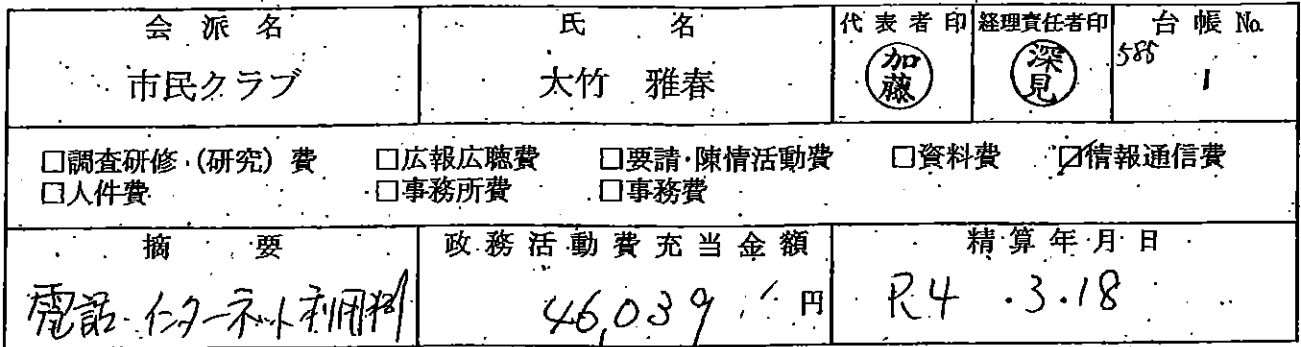 会派名 氏名 代表者印 経理責任者印 台帳No.
市民クラブ 大竹 雅春 加藤 深見 585 1
□調査研修(研究)費 □広報広聴費 □要請・陳情活動費 □資料費 ☑情報通信費
□人件費 □事務所費 □事務費
摘要 政務活動費充当金額 精算年月日
電話・インターネット利用料 46,039円 R4.3.18